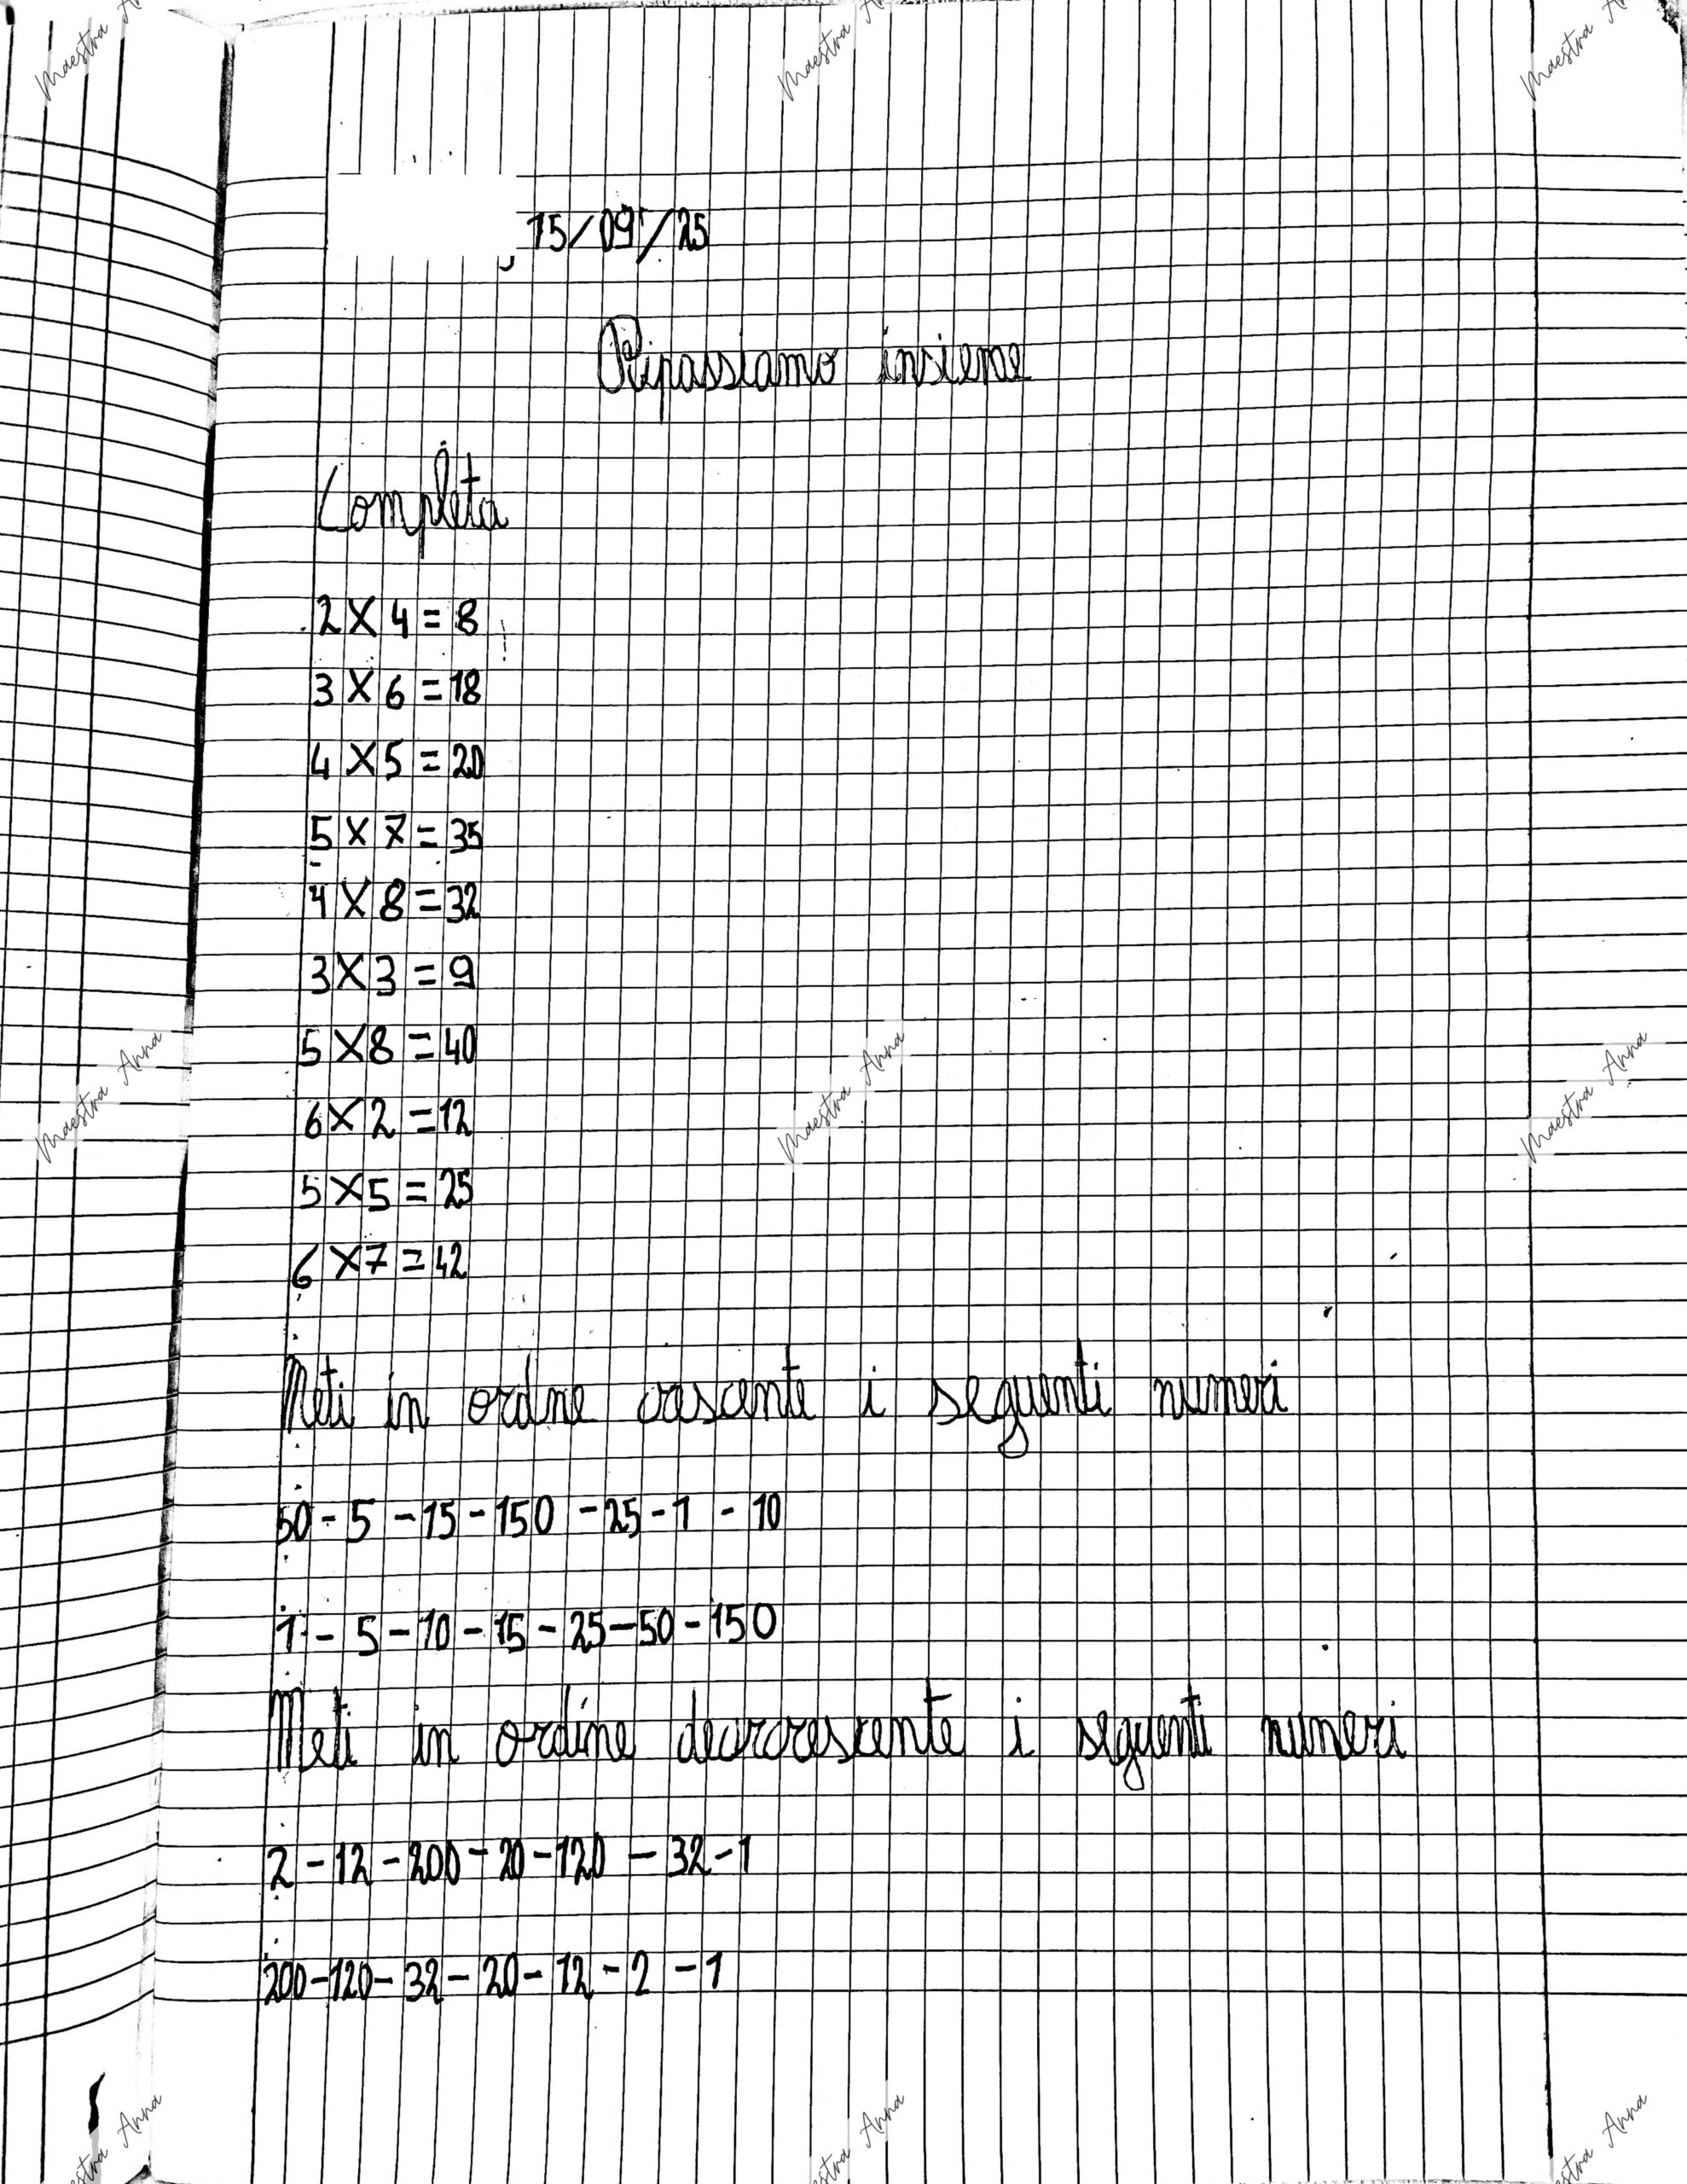 , 15/09/25
Ripassiamo insieme
Completa
2 X 4 = 8
3 X 6 = 18
4 X 5 = 20
5 X 7 = 35
4 X 8 = 32
3 X 3 = 9
5 X 8 = 40
6 X 2 = 12
5 X 5 = 25
6 X 7 = 42
Meti in ordne crescente i seguenti numeri
50 - 5 - 15 - 150 - 25 - 1 - 10
1 - 5 - 10 - 15 - 25 - 50 - 150
Meti in ordine decrescente i seguenti numeri
2 - 12 - 200 - 20 - 120 - 32 - 1
200 - 120 - 32 - 20 - 12 - 2 - 1
Maestra Anna
Maestra Anna
Maestra Anna